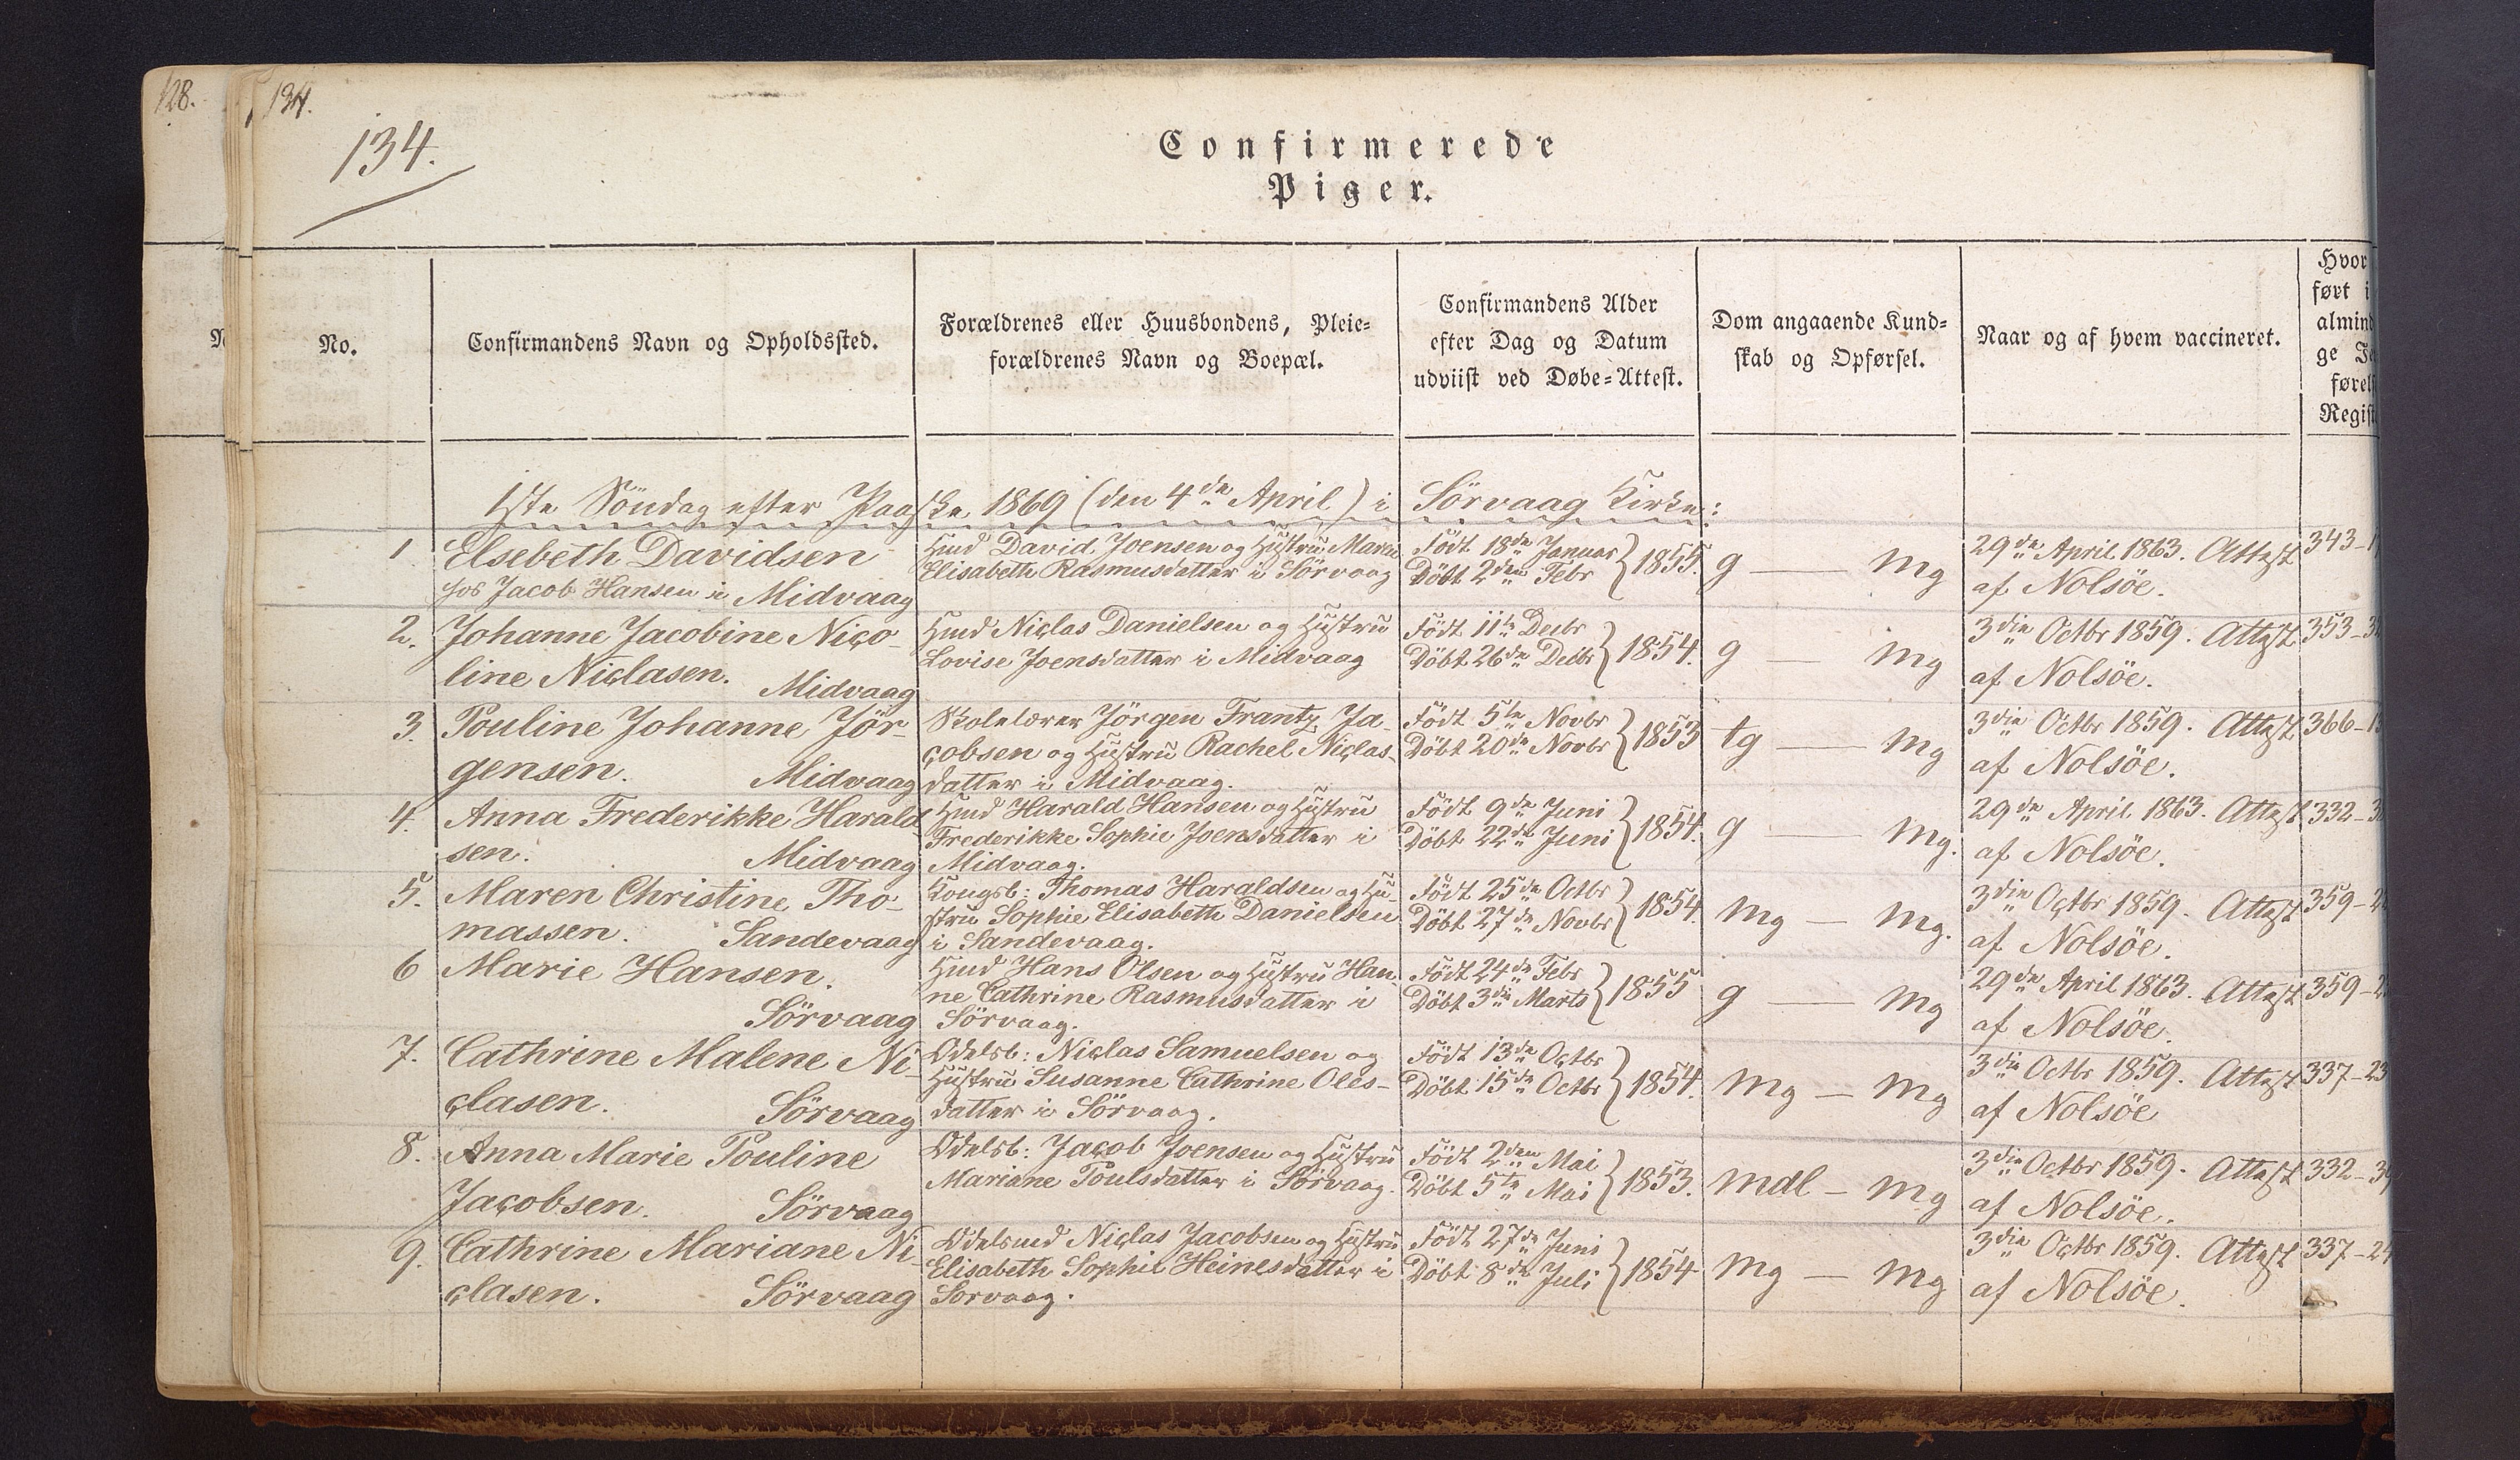 128.
134.
134.
Confirmerede
Piger.
No.
Confirmandens Navn og Opholdssted.
Forældrenes eller Huusbondens, Pleie=
forældrenes Navn og Boepæl.
Confirmandens Alder
efter Dag og Datum
udviist ved Døbe=Attest.
Dom angaaende Kund=
skab og Opførsel.
Naar og af hvem vaccineret.
Hvor
ført i
almind
ge Je
føreli
Regist
1ste Söndag efter Paaske 1869 (den 4de April) i Sörvaag Kirke:
1
Elsebeth Davidsen
hos Jacob Hansen i Midvaag
Hmd David Joensen og Hustru Maren
Elisabeth Rasmusdatter i Sörvaag
Födt 18de Januar
Döbt 2den Febr
1855.
g — mg
29de April 1863. Attest
af Nolsöe.
343-1
2.
Johanne Jacobine Nico-
line Niclasen.
Midvaag
Hmd Niclas Danielsen og Hustru
Lovise Joensdatter i Midvaag
Födt 11te Decbr
Döbt 26de Decbr
1854.
g — mg
3die Octbr 1859. Attest
af Nolsöe.
353-3
3.
Pouline Johanne Jör-
gensen.
Midvaag
Skolelærer Jörgen Frantz Ja-
cobsen og Hustru Rachel Niclas-
datter i Midvaag.
Födt 5te Novbr
Döbt 20de Novbr
1853
tg — mg
3die Octbr 1859. Attest
af Nolsöe.
366-1
4.
Anna Frederikke Harald
sen.
Midvaag
Hmd Harald Hansen og Hustru
Frederikke Sophie Joensdatter i
Midvaag.
Födt 9de Juni
Döbt 22de Juni
1854.
g — mg.
29de April 1863. Attest
af Nolsöe.
332-3
5.
Maren Christine Tho-
massen.
Sandevaag
Kongsb: Thomas Haraldsen og Hu-
stru Sophie Elisabeth Danielsen
i Sandevaag.
Födt 25de Octbr
Döbt 27de Novbr
1854.
mg — mg.
3die Octbr 1859. Attest
af Nolsöe.
359-2
6
Marie Hansen.
Sörvaag
Hmd Hans Olsen og Hustru Han-
ne Cathrine Rasmusdatter i
Sörvaag.
Födt 24de Febr
Döbt 3die Marts
1855
g — mg
29de April 1863. Attest
af Nolsöe.
359-2
7.
Cathrine Malene Ni-
clasen.
Sörvaag
Odelsb: Niclas Samuelsen og
Hustru Susanne Cathrine Oles-
datter i Sörvaag.
Födt 13de Octbr
Döbt 15de Octbr
1854.
mg — mg
3die Octbr 1859. Attest
af Nolsöe
337-23
8.
Anna Marie Pouline
Jacobsen.
Sörvaag
Odelsb: Jacob Joensen og Hustru
Mariane Poulsdatter i Sörvaag.
Födt 2den Mai
Döbt 5te Mai
1853.
mdl — mg
3die Octbr 1859. Attest
af Nolsöe.
332-39
9.
Cathrine Mariane Ni-
clasen.
Sörvaag
Odelsmd Niclas Jacobsen og Hustru
Elisabeth Sophie Heinesdatter i
Sorvaag.
Födt 27de Juni
Döbt 8de Juli
1854
mg — mg
3die Octbr 1859. Attest
af Nolsöe.
337-24